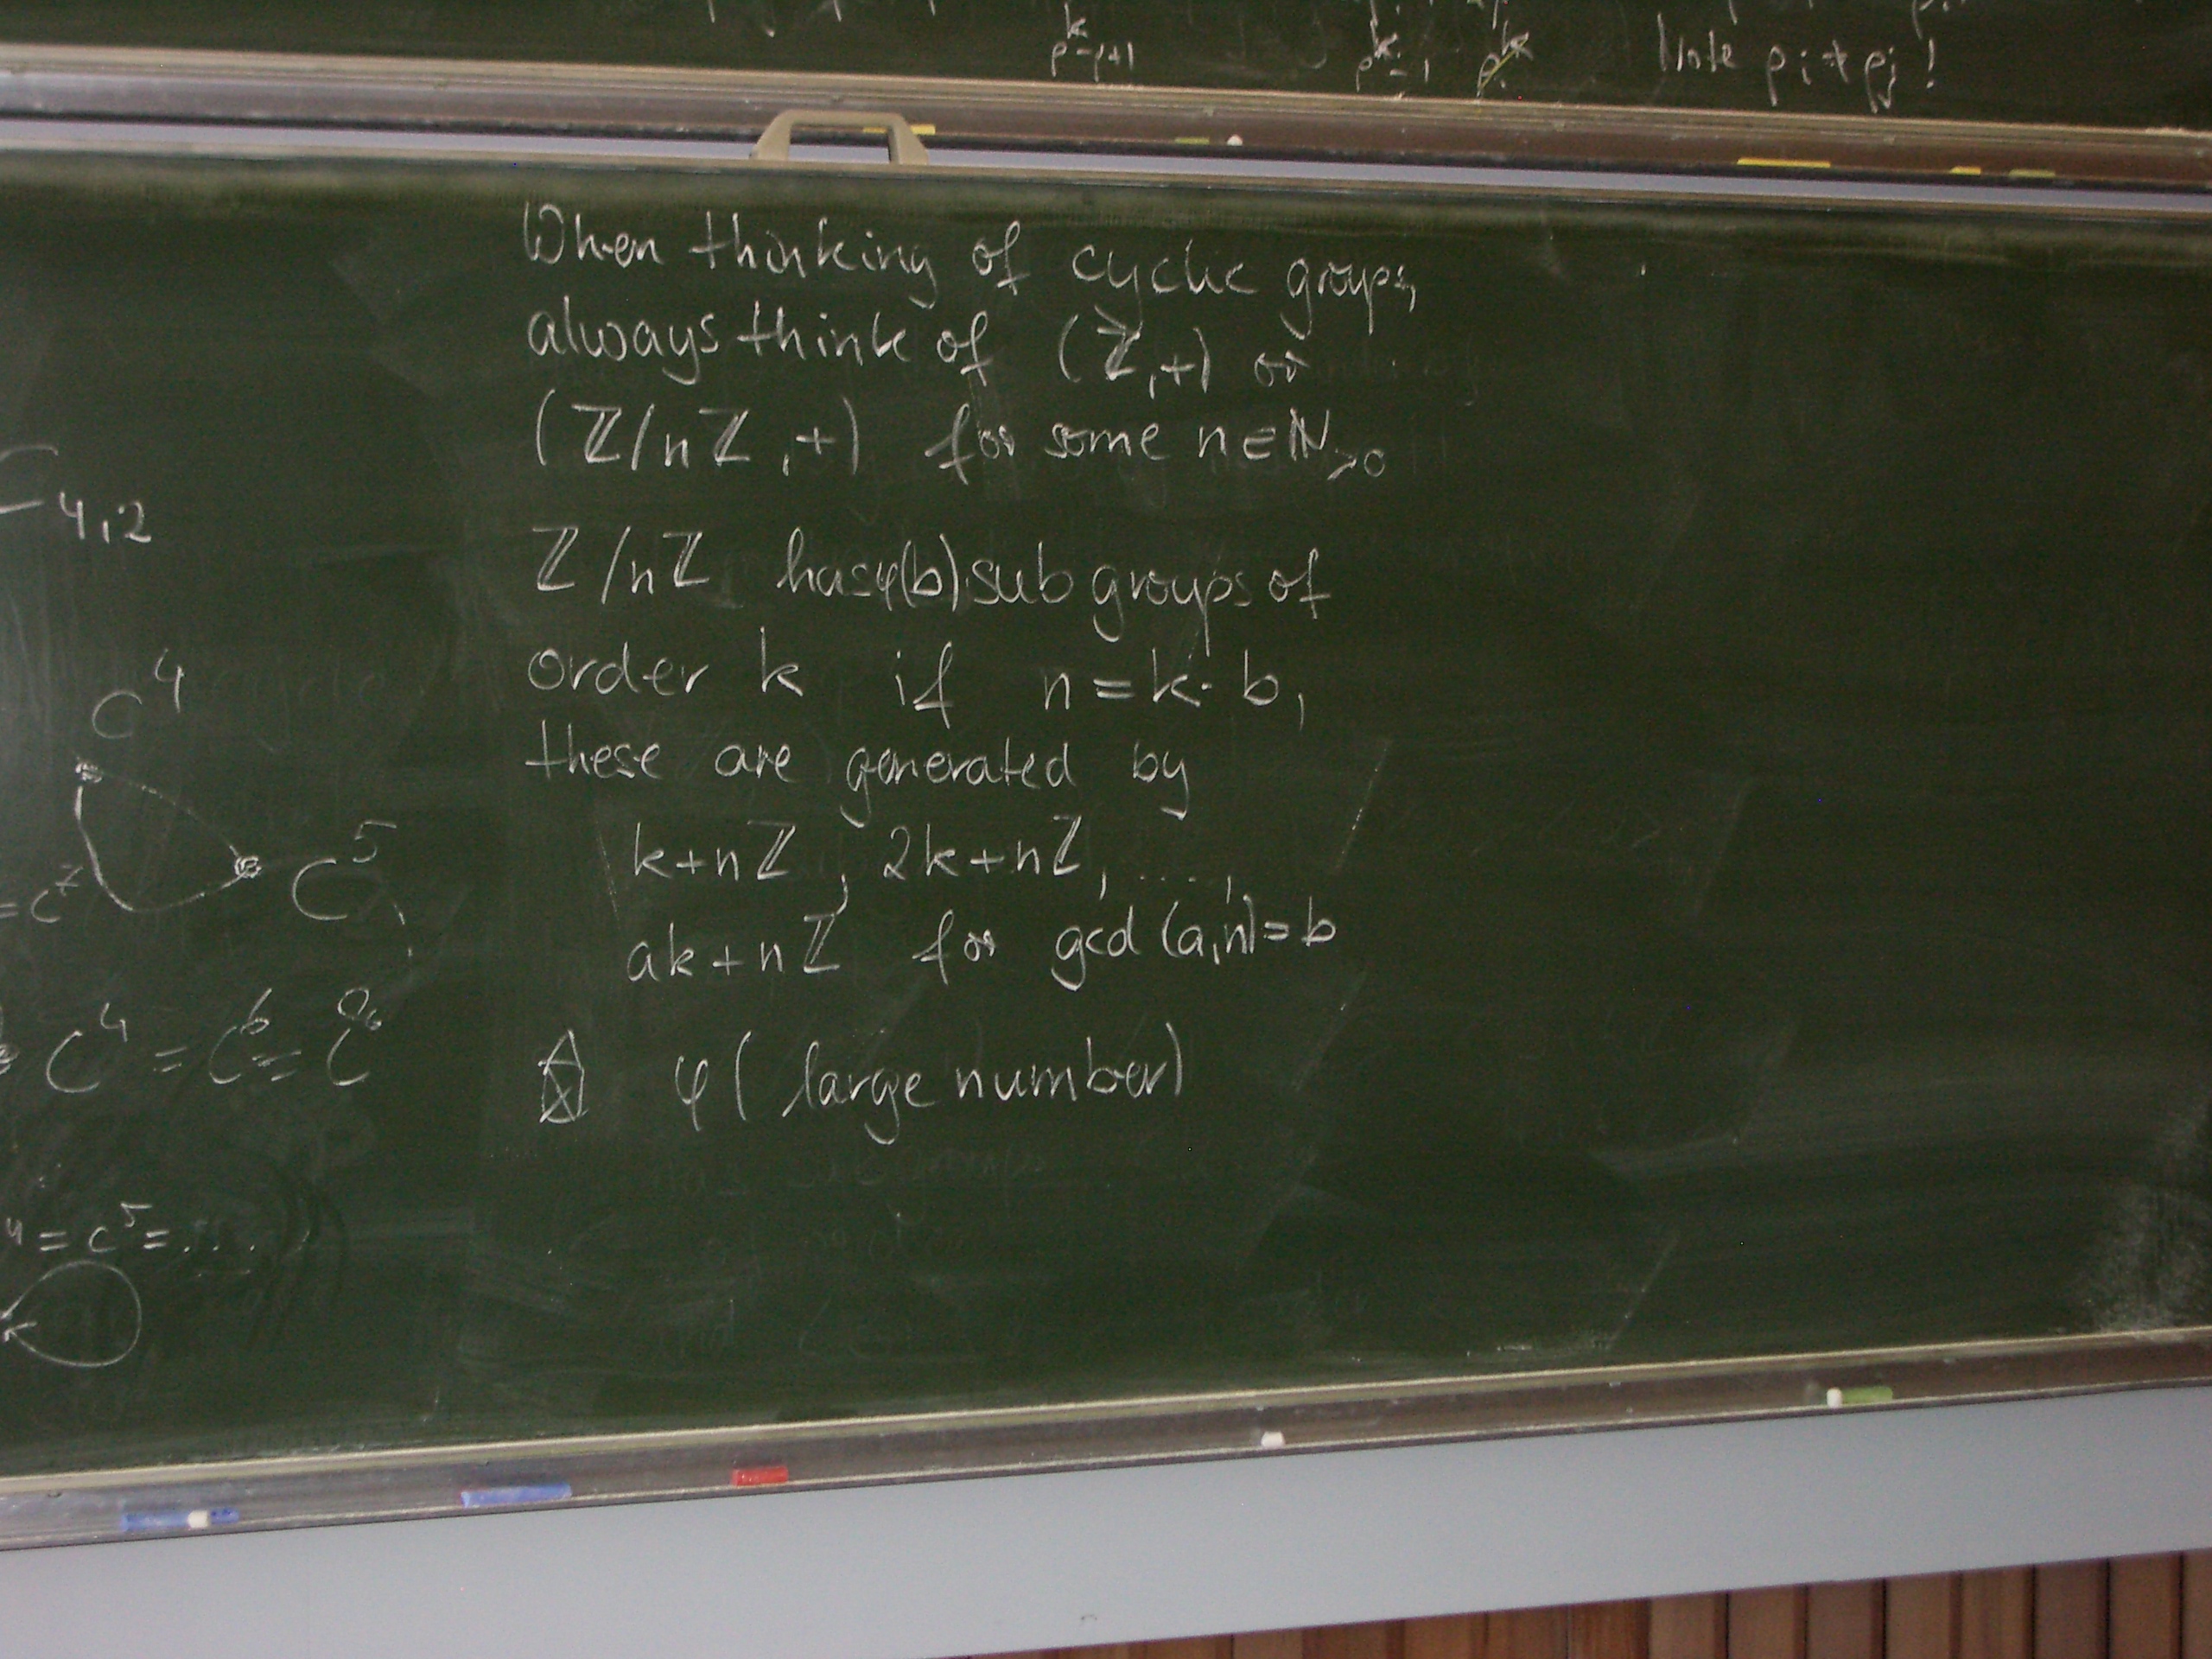 p^k-p+1
p^k-1 p^k
Note p_i ≠ p_j!
When thinking of cyclic groups,
always think of (ℤ,+) or
(ℤ/nℤ,+) for some n∈ℕ_>0
ℤ/nℤ has φ(b) subgroups of
order k if n=k·b,
these are generated by
k+nℤ, 2k+nℤ, ....,
ak+nℤ for gcd(a,n)=b
φ(large number)
4,2
C^4
C^5
=C^7
C^4 = C^6 = C^8
4 = C^5 = ....